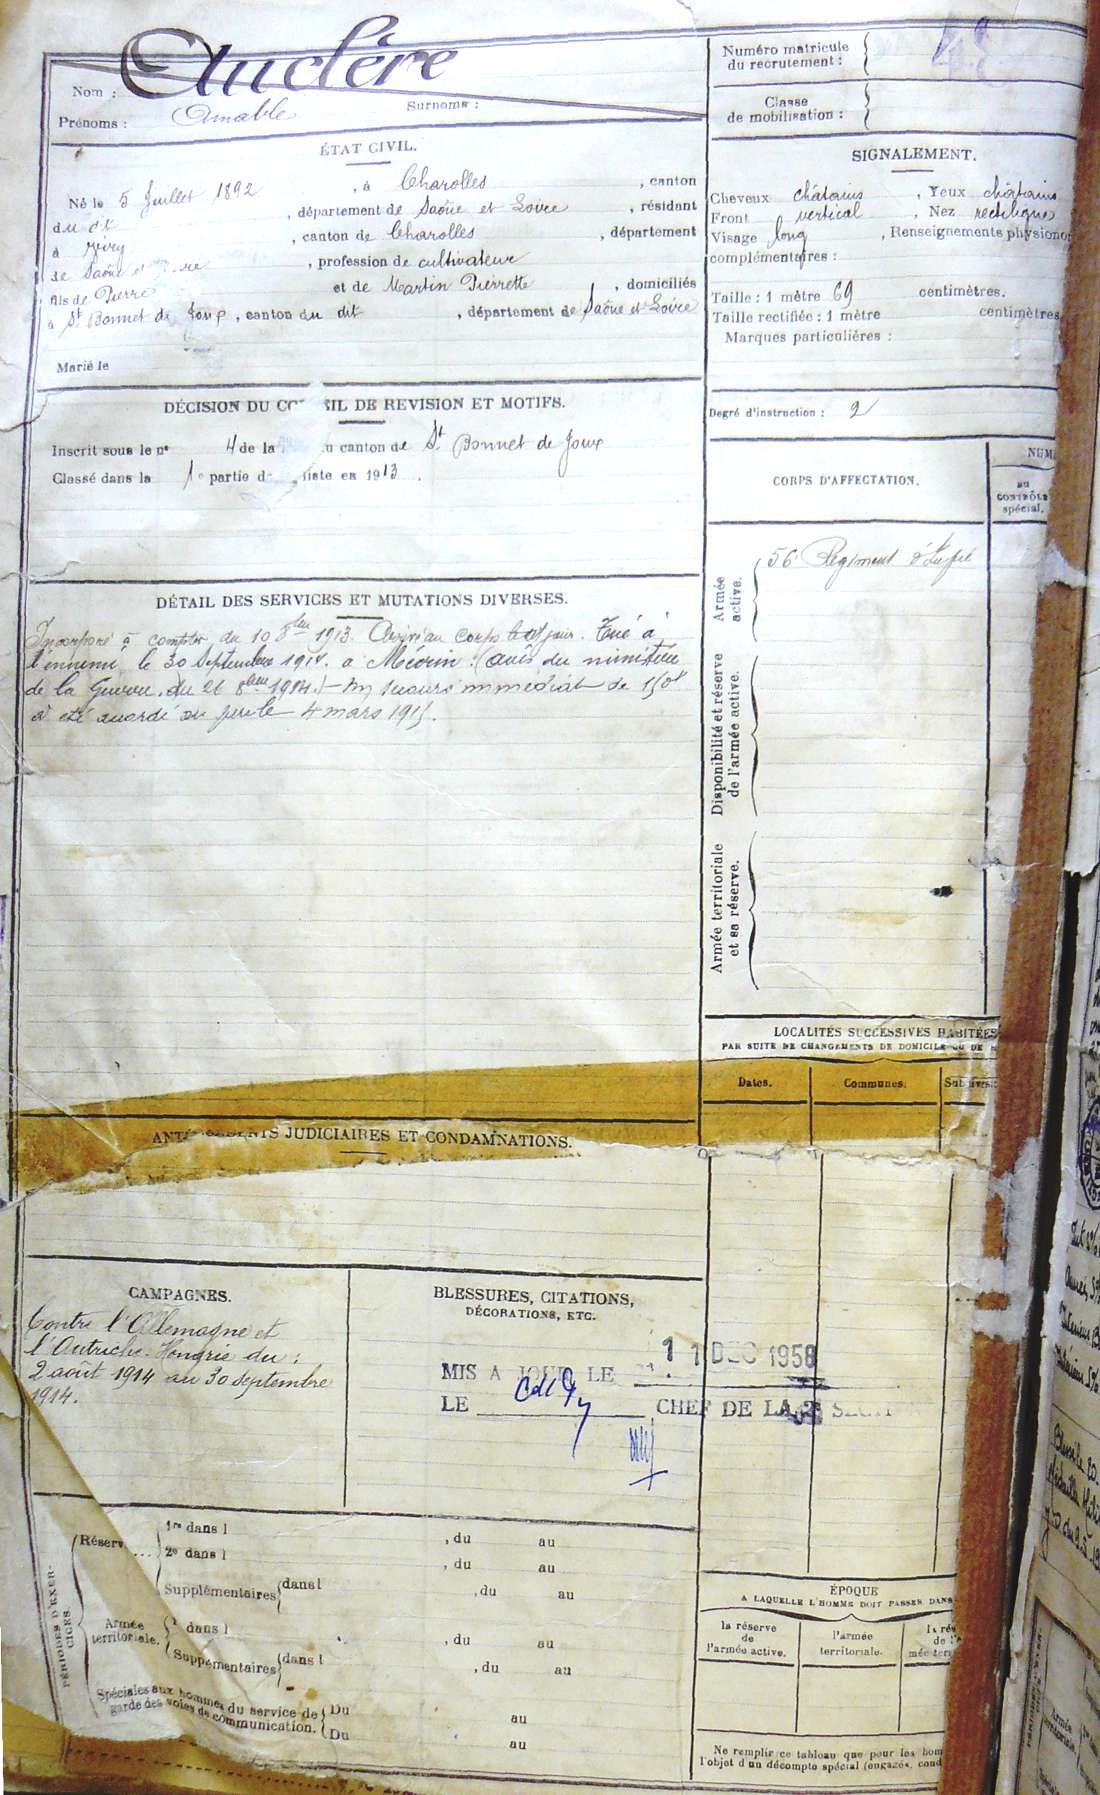 Nom : Auclère
Prénoms : Amable Surnoms :
Numéro matricule
du recrutement :
Classe
de mobilisation :
ÉTAT CIVIL.
Né le 5 Juillet 1892, à Charolles, canton
du dt, département de Saône et Loire, résidant
à Viry, canton de Charolles, département
de Saône et re, profession de cultivateur
fils de Pierre et de Martin Pierrette, domiciliés
à St Bonnet de Joux, canton du dit, département de Saône et Loire
Marié le
SIGNALEMENT.
Cheveux châtains, Yeux châtains
Front vertical, Nez rectiligne
Visage long, Renseignements physiono
complémentaires :
Taille : 1 mètre 69 centimètres.
Taille rectifiée : 1 mètre centimètres
Marques particulières :
Degré d'instruction : 2
DÉCISION DU CO EIL DE REVISION ET MOTIFS.
Inscrit sous le no 4 de la u canton de St Bonnet de Joux
Classé dans la 1e partie d liste en 1913.
CORPS D'AFFECTATION.
NUM
au
CONTRÔLE
spécial.
Armée
active.
56e Régiment d'Infie
Disponibilité et réserve
de l'armée active.
Armée territoriale
et sa réserve.
DÉTAIL DES SERVICES ET MUTATIONS DIVERSES.
Incorporé à compter du 10 8bre 1913. Arrivé au corps le dt jour. Tué à
l'ennemi, le 30 Septembre 1914. à Mécrin. (avis du ministère
de la Guerre, du 26 8bre 1914.) - Un secours immédiat de 150f
a été accordé au père le 4 mars 1915.
LOCALITÉS SUCCESSIVES HABITÉES
PAR SUITE DE CHANGEMENTS DE DOMICILE OU DE R
Dates. Communes. Subdivisi
ANTÉCÉDENTS JUDICIAIRES ET CONDAMNATIONS.
CAMPAGNES.
Contre l'Allemagne et
l'Autriche-Hongrie du :
2 août 1914 au 30 septembre
1914.
BLESSURES, CITATIONS,
DÉCORATIONS, ETC.
MIS A JOUR LE 11 DEC 1958
LE CHEF DE LA 2e SECTI
PÉRIODES D'EXER-
CICES.
Réserv
1re dans l , du au
2e dans l , du au
Supplémentaires dans l , du au
Armée
territoriale.
1 dans l , du au
Supplémentaires dans l , du au
Spéciales aux hommes du service de
garde des voies de communication.
Du au
Du au
ÉPOQUE
A LAQUELLE L'HOMME DOIT PASSER DANS
la réserve
de
l'armée active.
l'armée
territoriale.
la rés
de l'a
mée terr
Ne remplir ce tableau que pour les hom
l'objet d'un décompte spécial (engagés, cond